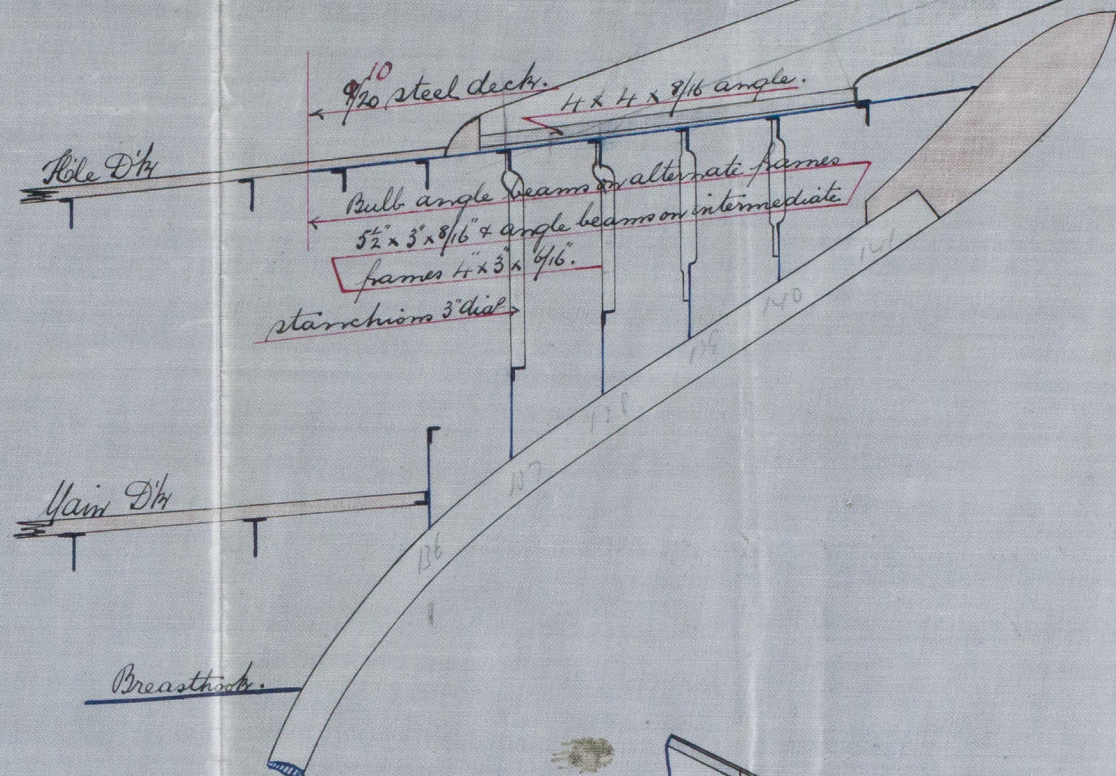 10
9/20 steel deck.
4 x 4 x 8/16 angle.
F'cle D'k
Bulb angle beams on alternate frames
5½" x 3" x 8/16" & angle beams on intermediate
frames 4" x 3" x 6/16".
stanchions 3" diar
141
140
139
138
137
Main D'k
136
Breasthook.